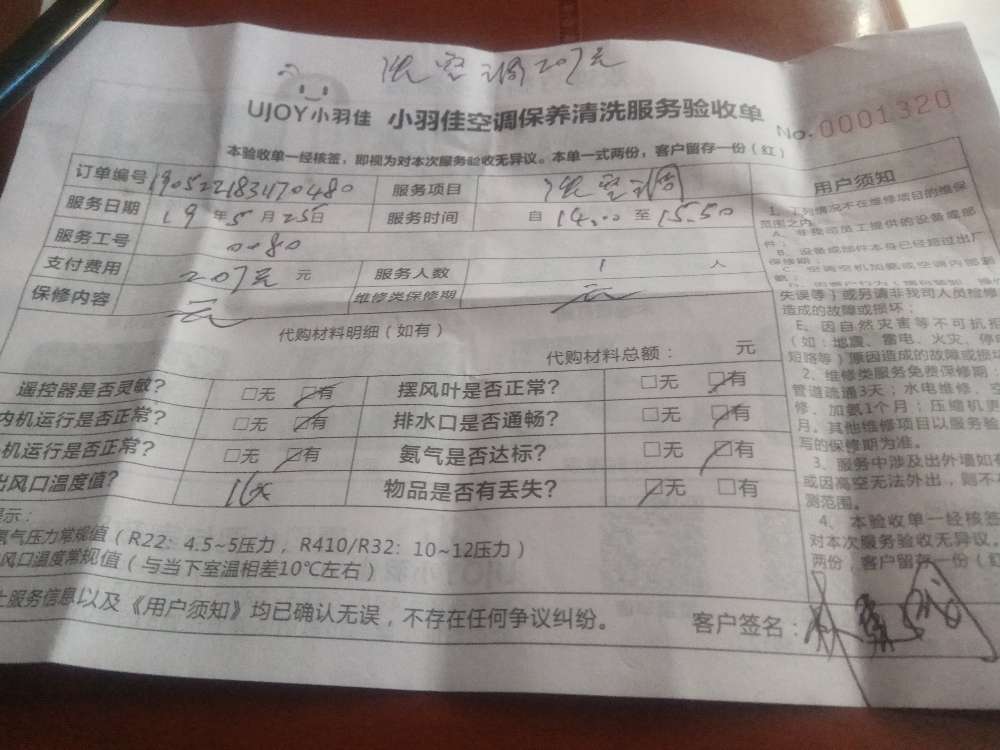 洗空调207元
UJOY小羽佳 小羽佳空调保养清洗服务验收单 No.0001320
本验收单一经核签，即视为对本次服务验收无异议。本单一式两份，客户留存一份（红）
订单编号 服务项目 洗空调
服务日期 19年5月25日 服务时间 自14:00至15:50
服务工号 0080
支付费用 207元 元 服务人数 1 人
保修内容 无 维修类保修期 无
代购材料明细（如有）
代购材料总额： 元
遥控器是否灵敏? □无 □有 摆风叶是否正常? □无 □有
内机运行是否正常? □无 □有 排水口是否通畅? □无 □有
机运行是否正常? □无 □有 氨气是否达标? □无 □有
出风口温度值? 物品是否有丢失? □无 □有
示：
氨气压力常规值（R22：4.5~5压力，R410/R32：10~12压力）
风口温度常规值（与当下室温相差10℃左右）
上服务信息以及《用户须知》均已确认无误，不存在任何争议纠纷。
客户签名：
用户须知
1、下列情况不在维修项目的维保
范围之内
A、非我司员工提供的设备或部
件；
B、设备或部件本身已经超过出厂
保修期；
C、空调空机加氨或空调内部
失误等）或另请非我司人员检修
造成的故障或损坏；
E、因自然灾害等不可抗
（如：地震、雷电、火灾、停
短路等）原因造成的故障或损
2、维修类服务免费保修期：
管道疏通3天；水电维修、
修、加氨1个月；压缩机更
月。其他维修项目以服务验
写的保修期为准。
3、服务中涉及出外墙如
或因高空无法外出，则不
测范围。
4、本验收单一经核
对本次服务验收无异议。
两份，客户留存一份（红